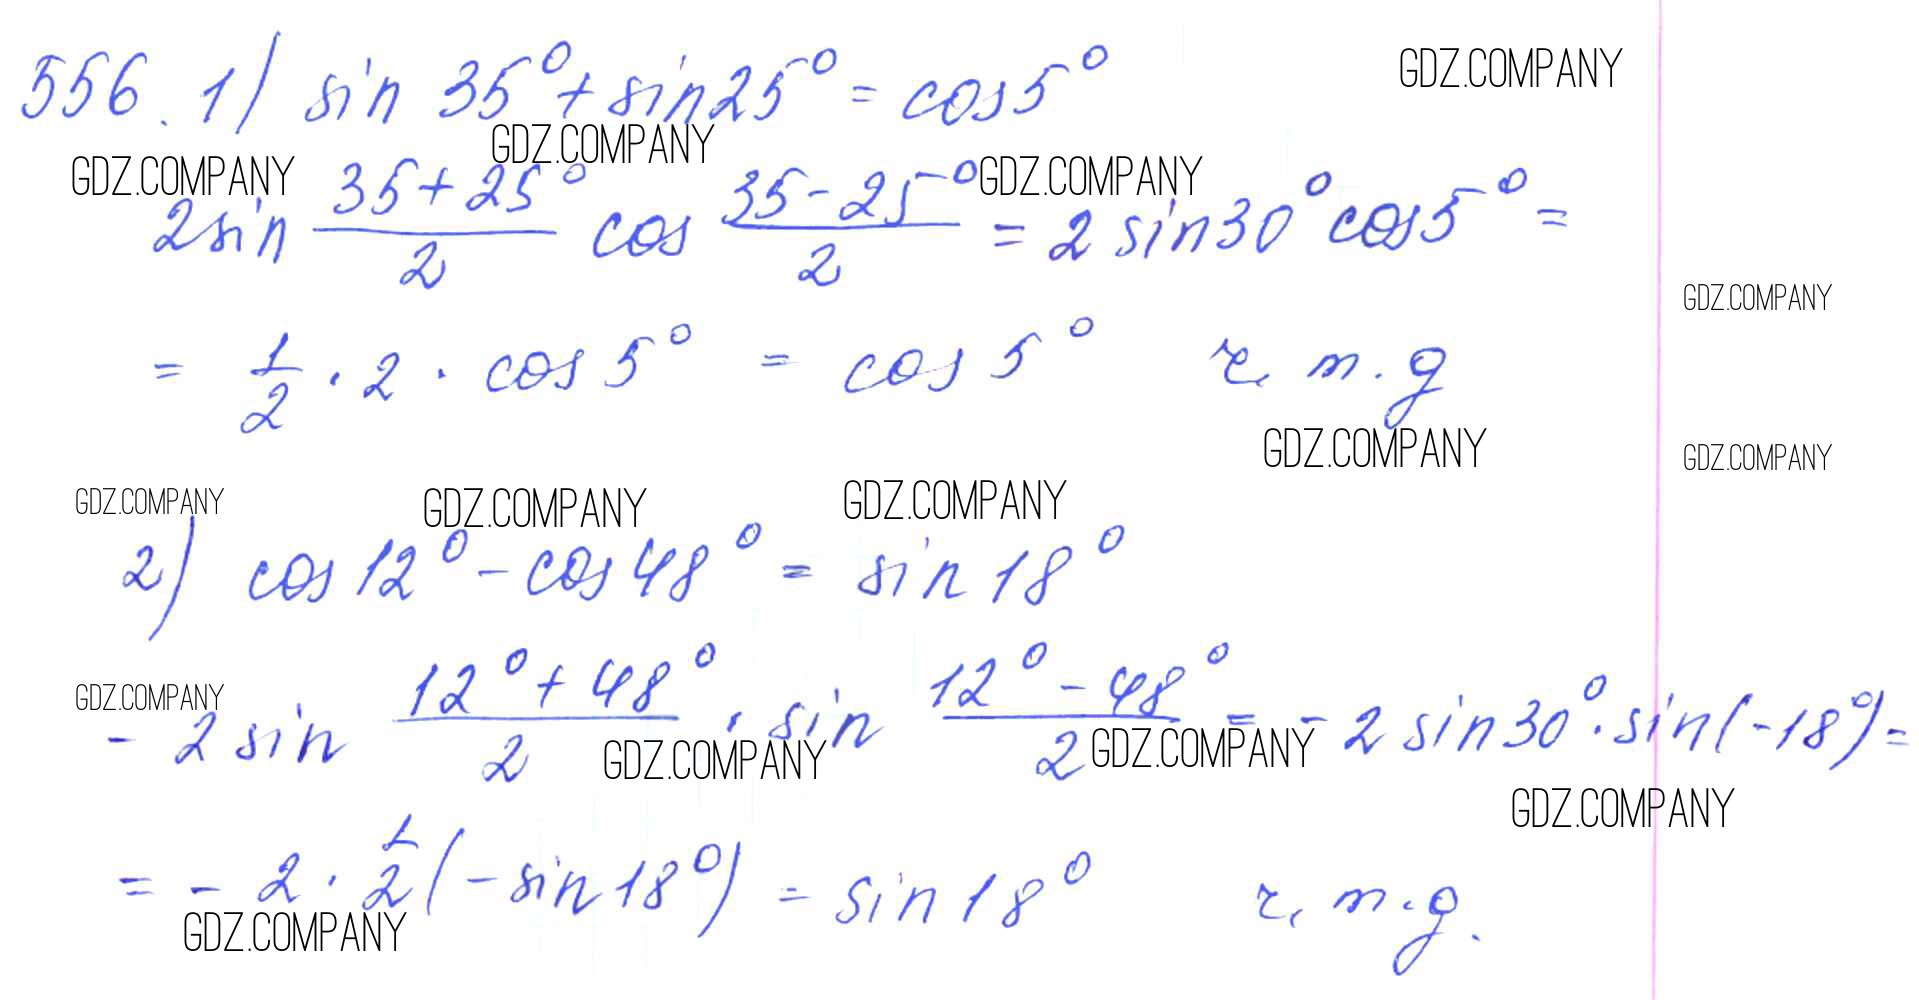 556. 1) sin 35° + sin 25° = cos 5°
GDZ.COMPANY
GDZ.COMPANY
GDZ.COMPANY
GDZ.COMPANY
2 sin (35+25°)/2 cos (35-25°)/2 = 2 sin 30° cos 5° =
GDZ.COMPANY
= 1/2 · 2 · cos 5° = cos 5° ч. т. д
GDZ.COMPANY
GDZ.COMPANY
GDZ.COMPANY
GDZ.COMPANY
GDZ.COMPANY
2) cos 12° - cos 48° = sin 18°
GDZ.COMPANY
- 2 sin (12° + 48°)/2 · sin (12° - 48°)/2 = - 2 sin 30° · sin (-18°) =
GDZ.COMPANY
GDZ.COMPANY
GDZ.COMPANY
= - 2 · 1/2 (- sin 18°) = sin 18° ч. т. д.
GDZ.COMPANY